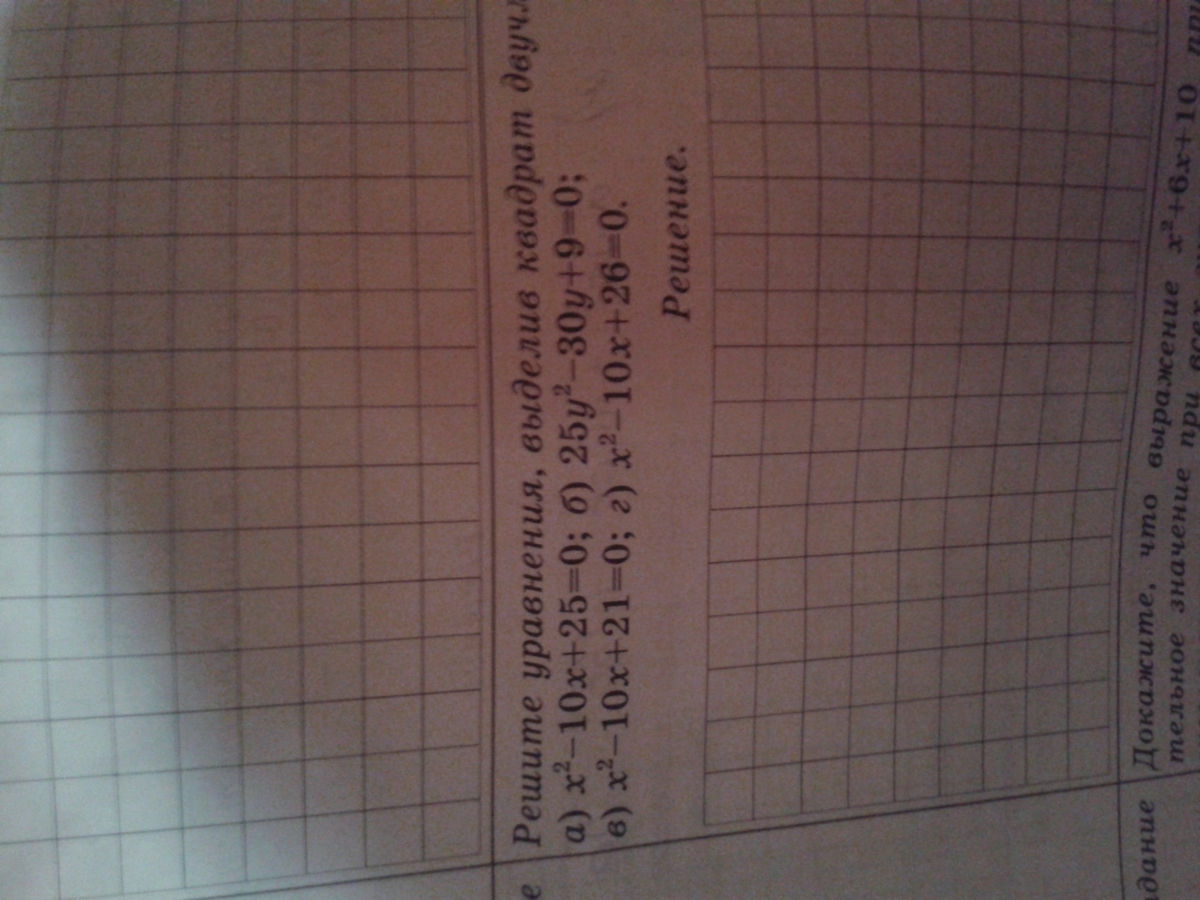 е Решите уравнения, выделив квадрат двучл
а) x²−10x+25=0; б) 25y²−30y+9=0;
в) x²−10x+21=0; г) x²−10x+26=0.
Решение.
дание Докажите, что выражение x²+6x+10
тельное значение при всех